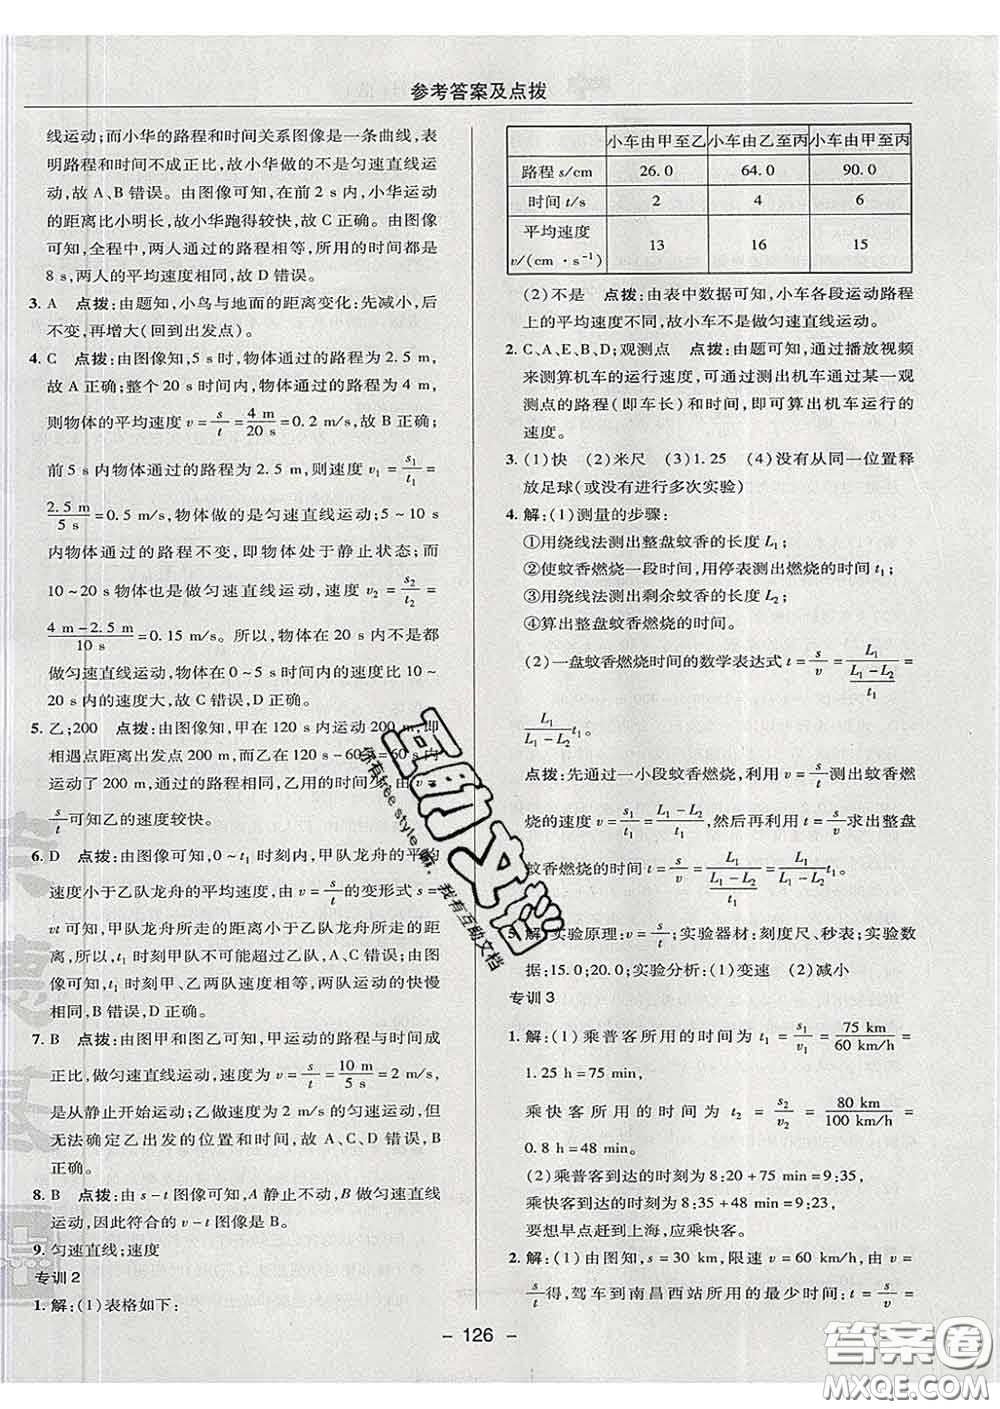 参考答案及点拨
线运动;而小华的路程和时间关系图像是一条曲线,表
明路程和时间不成正比,故小华做的不是匀速直线运
动,故 A、B 错误。由图像可知,在前 2 s 内,小华运动
的距离比小明长,故小华跑得较快,故 C 正确。由图像
可知,全程中,两人通过的路程相等,所用的时间都是
8 s,两人的平均速度相同,故 D 错误。
3. A 点拨:由题知,小鸟与地面的距离变化:先减小,后
不变,再增大(回到出发点)。
4. C 点拨:由图像知,5 s 时,物体通过的路程为 2.5 m,
故 A 正确;整个 20 s 时间内,物体通过的路程为 4 m,
则物体的平均速度 v = s/t = 4 m/20 s = 0.2 m/s,故 B 正确;
前 5 s 内物体通过的路程为 2.5 m,则速度 v₁ = s₁/t₁ =
2.5 m/5 s = 0.5 m/s,物体做的是匀速直线运动;5 ~ 10 s
内物体通过的路程不变,即物体处于静止状态;而
10~20 s 物体也是做匀速直线运动,速度 v₂ = s₂/t₂ =
4 m-2.5 m/10 s = 0.15 m/s。所以,物体在 20 s 内不是都
做匀速直线运动,物体在 0~5 s 时间内的速度比 10~20
s 内的速度大,故 C 错误,D 正确。
5. 乙;200 点拨:由图像知,甲在 120 s 内运动 200 m,即
相遇点距离出发点 200 m,而乙在 120 s-60 s=60 s 内
运动了 200 m,通过的路程相同,乙用的时间少,由 v=
s/t 可知乙的速度较快。
6. D 点拨:由图像可知,0~t₁ 时刻内,甲队龙舟的平均
速度小于乙队龙舟的平均速度,由 v = s/t 的变形式 s =
vt 可知,甲队龙舟所走的距离小于乙队龙舟所走的距
离,所以,t₁ 时刻甲队不可能超过乙队;由图
像可知,t₁ 时刻甲、乙两队速度相等,两队运动的快慢
相同。故 A、B、C 错误,D 正确。
7. B 点拨:由图甲和图乙可知,甲运动的路程与时间成
正比,做匀速直线运动,速度 v = s/t = 10 m/5 s = 2 m/s,
是从静止开始运动;乙做速度为 2 m/s 的匀速运动,但
无法确定乙出发的位置和时间,故 A、C、D 错误,B
正确。
8. B 点拨:由 s-t 图像可知,A 静止不动,B 做匀速直线
运动,因此符合的 v-t 图像是 B。
9. 匀速直线;速度
专训 2
1. 解:(1)表格如下:
小车由甲至乙 小车由乙至丙 小车由甲至丙
路程 s/cm 26.0 64.0 90.0
时间 t/s 2 4 6
平均速度
v/(cm·s⁻¹) 13 16 15
(2)不是 点拨:由表中数据可知,小车各段运动路程
上的平均速度不同,故小车不是做匀速直线运动。
2. C、A、E、B、D;观测点 点拨:由题可知,通过播放视频
来测算机车的运行速度,可通过测出机车通过某一观
测点的路程(即车长)和时间,即可算出机车运行的
速度。
3. (1)快 (2)米尺 (3)1.25 (4)没有从同一位置释
放足球(或没有进行多次实验)
4. 解:(1)测量的步骤:
①用绕线法测出整盘蚊香的长度 L₁;
②使蚊香燃烧一段时间,用停表测出燃烧的时间 t₁;
③用绕线法测出剩余蚊香的长度 L₂;
④算出整盘蚊香燃烧的时间。
(2)一盘蚊香燃烧时间的数学表达式 t = s/v = L₁/((L₁-L₂)/t₁) =
L₁/(L₁-L₂) t₁。
点拨:先通过一小段蚊香燃烧,利用 v = s/t 测出蚊香燃
烧的速度 v = s₁/t₁ = (L₁-L₂)/t₁,然后再利用 t = s/v 求出整盘
蚊香燃烧的时间 t = s/v = L₁/((L₁-L₂)/t₁) = L₁/(L₁-L₂) t₁。
5. 解:实验原理:v = s/t;实验器材:刻度尺、秒表;实验数
据:15.0;20.0;实验分析:(1)变速 (2)减小
专训 3
1. 解:(1)乘普客所用的时间为 t₁ = s₁/v₁ = 75 km/60 km/h =
1.25 h=75 min,
乘快客所用的时间为 t₂ = s₂/v₂ = 80 km/100 km/h =
0.8 h=48 min。
(2)乘普客到达的时刻为 8:20+75 min=9:35,
乘快客到达的时刻为 8:35+48 min=9:23,
要想早点赶到上海,应乘快客。
2. 解:(1)由图知,s = 30 km,限速 v = 40 km/h,由 v =
s/t 得,驾车到南昌西站所用的最少时间:t = s/v =
- 126 -
互助文档
你有free style 啊,我有互助文档
答案圈
MXQE.COM